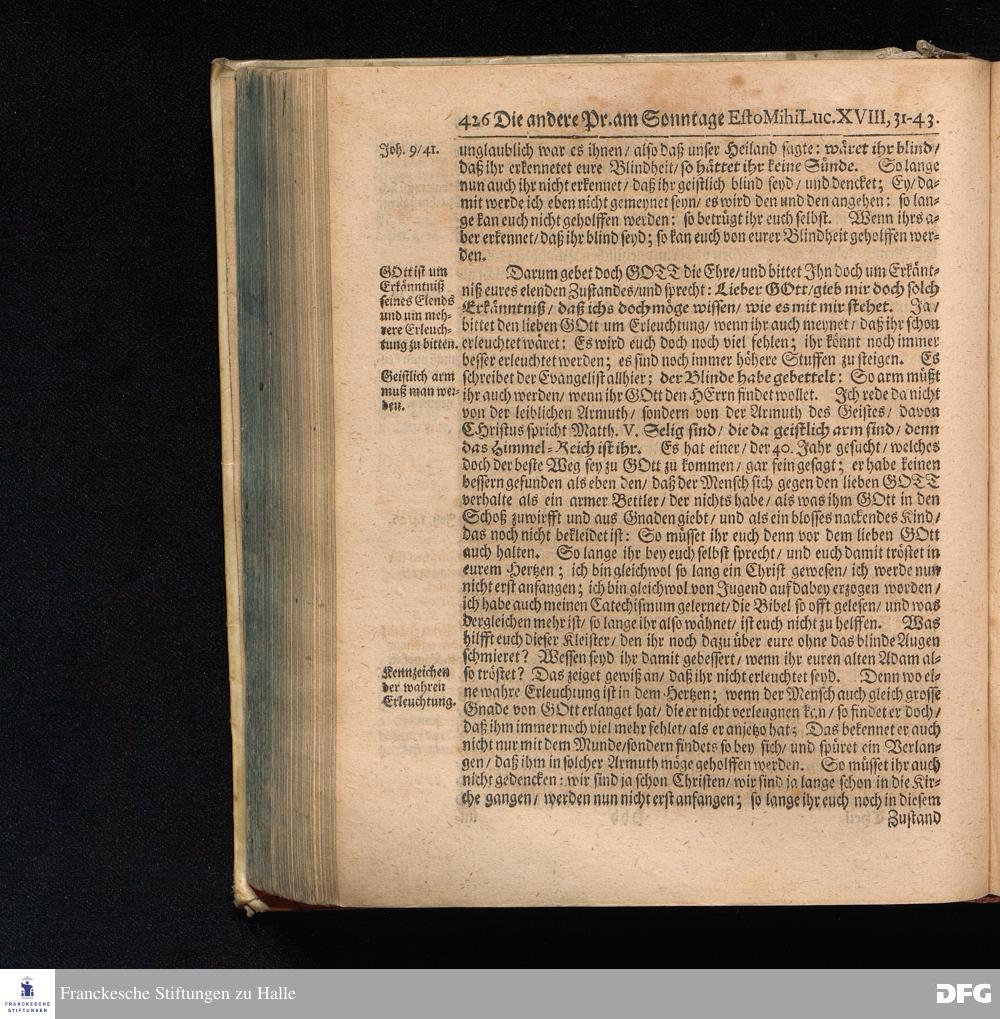 426 Die andere Pr. am Sonntage Esto Mihi Luc. XVIII, 31-43.
Joh. 9/41.
unglaublich war es ihnen/ also daß unser Heiland sagte: wäret ihr blind/
daß ihr erkennetet eure Blindheit/ so hättet ihr keine Sünde. So lange
nun auch ihr nicht erkennet/ daß ihr geistlich blind seyd/ und dencket; Ey/ da-
mit werde ich eben nicht gemeynet seyn/ es wird den und den angehen: so lan-
ge kan euch nicht geholffen werden: so betrügt ihr euch selbst. Wenn ihrs a-
ber erkennet/ daß ihr blind seyd; so kan euch von eurer Blindheit geholffen wer-
den.
GOtt ist um
Erkänntniß
seines Elends
und um meh-
rere Erleuch-
tung zu bitten.
Darum gebet doch GOTT die Ehre/ und bittet Ihn doch um Erkänt-
niß eures elenden Zustandes/ und sprecht: Lieber GOtt/ gieb mir doch solch
Erkänntniß/ daß ichs doch möge wissen/ wie es mit mir stehet. Ja/
bittet den lieben GOtt um Erleuchtung/ wenn ihr auch meynet/ daß ihr schon
erleuchtet wäret: Es wird euch doch noch viel fehlen; ihr könnt noch immer
besser erleuchtet werden; es sind noch immer höhere Stuffen zu steigen. Es
Geistlich arm
muß man wer-
den.
schreibet der Evangelist allhier; der Blinde habe gebettelt: So arm müßt
ihr auch werden/ wenn ihr GOtt den HErrn findet wollet. Ich rede da nicht
von der leiblichen Armuth/ sondern von der Armuth des Geistes/ davon
CHristus spricht Matth. V. Selig sind/ die da geistlich arm sind/ denn
das Himmel-Reich ist ihr. Es hat einer/ der 40. Jahr gesucht/ welches
doch der beste Weg sey zu GOtt zu kommen/ gar fein gesagt; er habe keinen
bessern gefunden als eben den/ daß der Mensch sich gegen den lieben GOTT
verhalte als ein armer Bettler/ der nichts habe/ als was ihm GOtt in den
Schoß zuwirfft und aus Gnaden giebt/ und als ein blosses nackendes Kind/
das noch nicht bekleidet ist: So müsset ihr euch denn vor dem lieben GOtt
auch halten. So lange ihr bey euch selbst sprecht/ und euch damit tröstet in
eurem Hertzen; ich bin gleichwol so lang ein Christ gewesen/ ich werde nun
nicht erst anfangen; ich bin gleichwol von Jugend auf dabey erzogen worden/
ich habe auch meinen Catechismum gelernet/ die Bibel so offt gelesen/ und was
dergleichen mehr ist/ so lange ihr also wähnet/ ist euch nicht zu helffen. Was
hilfft euch dieser Kleister/ den ihr noch dazu über eure ohne das blinde Augen
schmieret? Wessen seyd ihr damit gebessert/ wenn ihr euren alten Adam al-
Kennzeichen
der wahren
Erleuchtung.
so tröstet? Das zeiget gewiß an/ daß ihr nicht erleuchtet seyd. Denn wo ei-
ne wahre Erleuchtung ist in dem Hertzen; wenn der Mensch auch gleich grosse
Gnade von GOtt erlanget hat/ die er nicht verleugnen kan/ so findet er doch/
daß ihm immer noch viel mehr fehlet/ als er anjetzo hat; Das bekennet er auch
nicht nur mit dem Munde/ sondern findets so bey sich/ und spüret ein Verlan-
gen/ daß ihm in solcher Armuth möge geholffen werden. So müsset ihr auch
nicht gedencken: wir sind ja schon Christen/ wir sind ja lange schon in die Kir-
che gangen/ werden nun nicht erst anfangen; so lange ihr euch noch in diesem
Zustand
FRANCKESCHE
STIFTUNGEN
Franckesche Stiftungen zu Halle
DFG